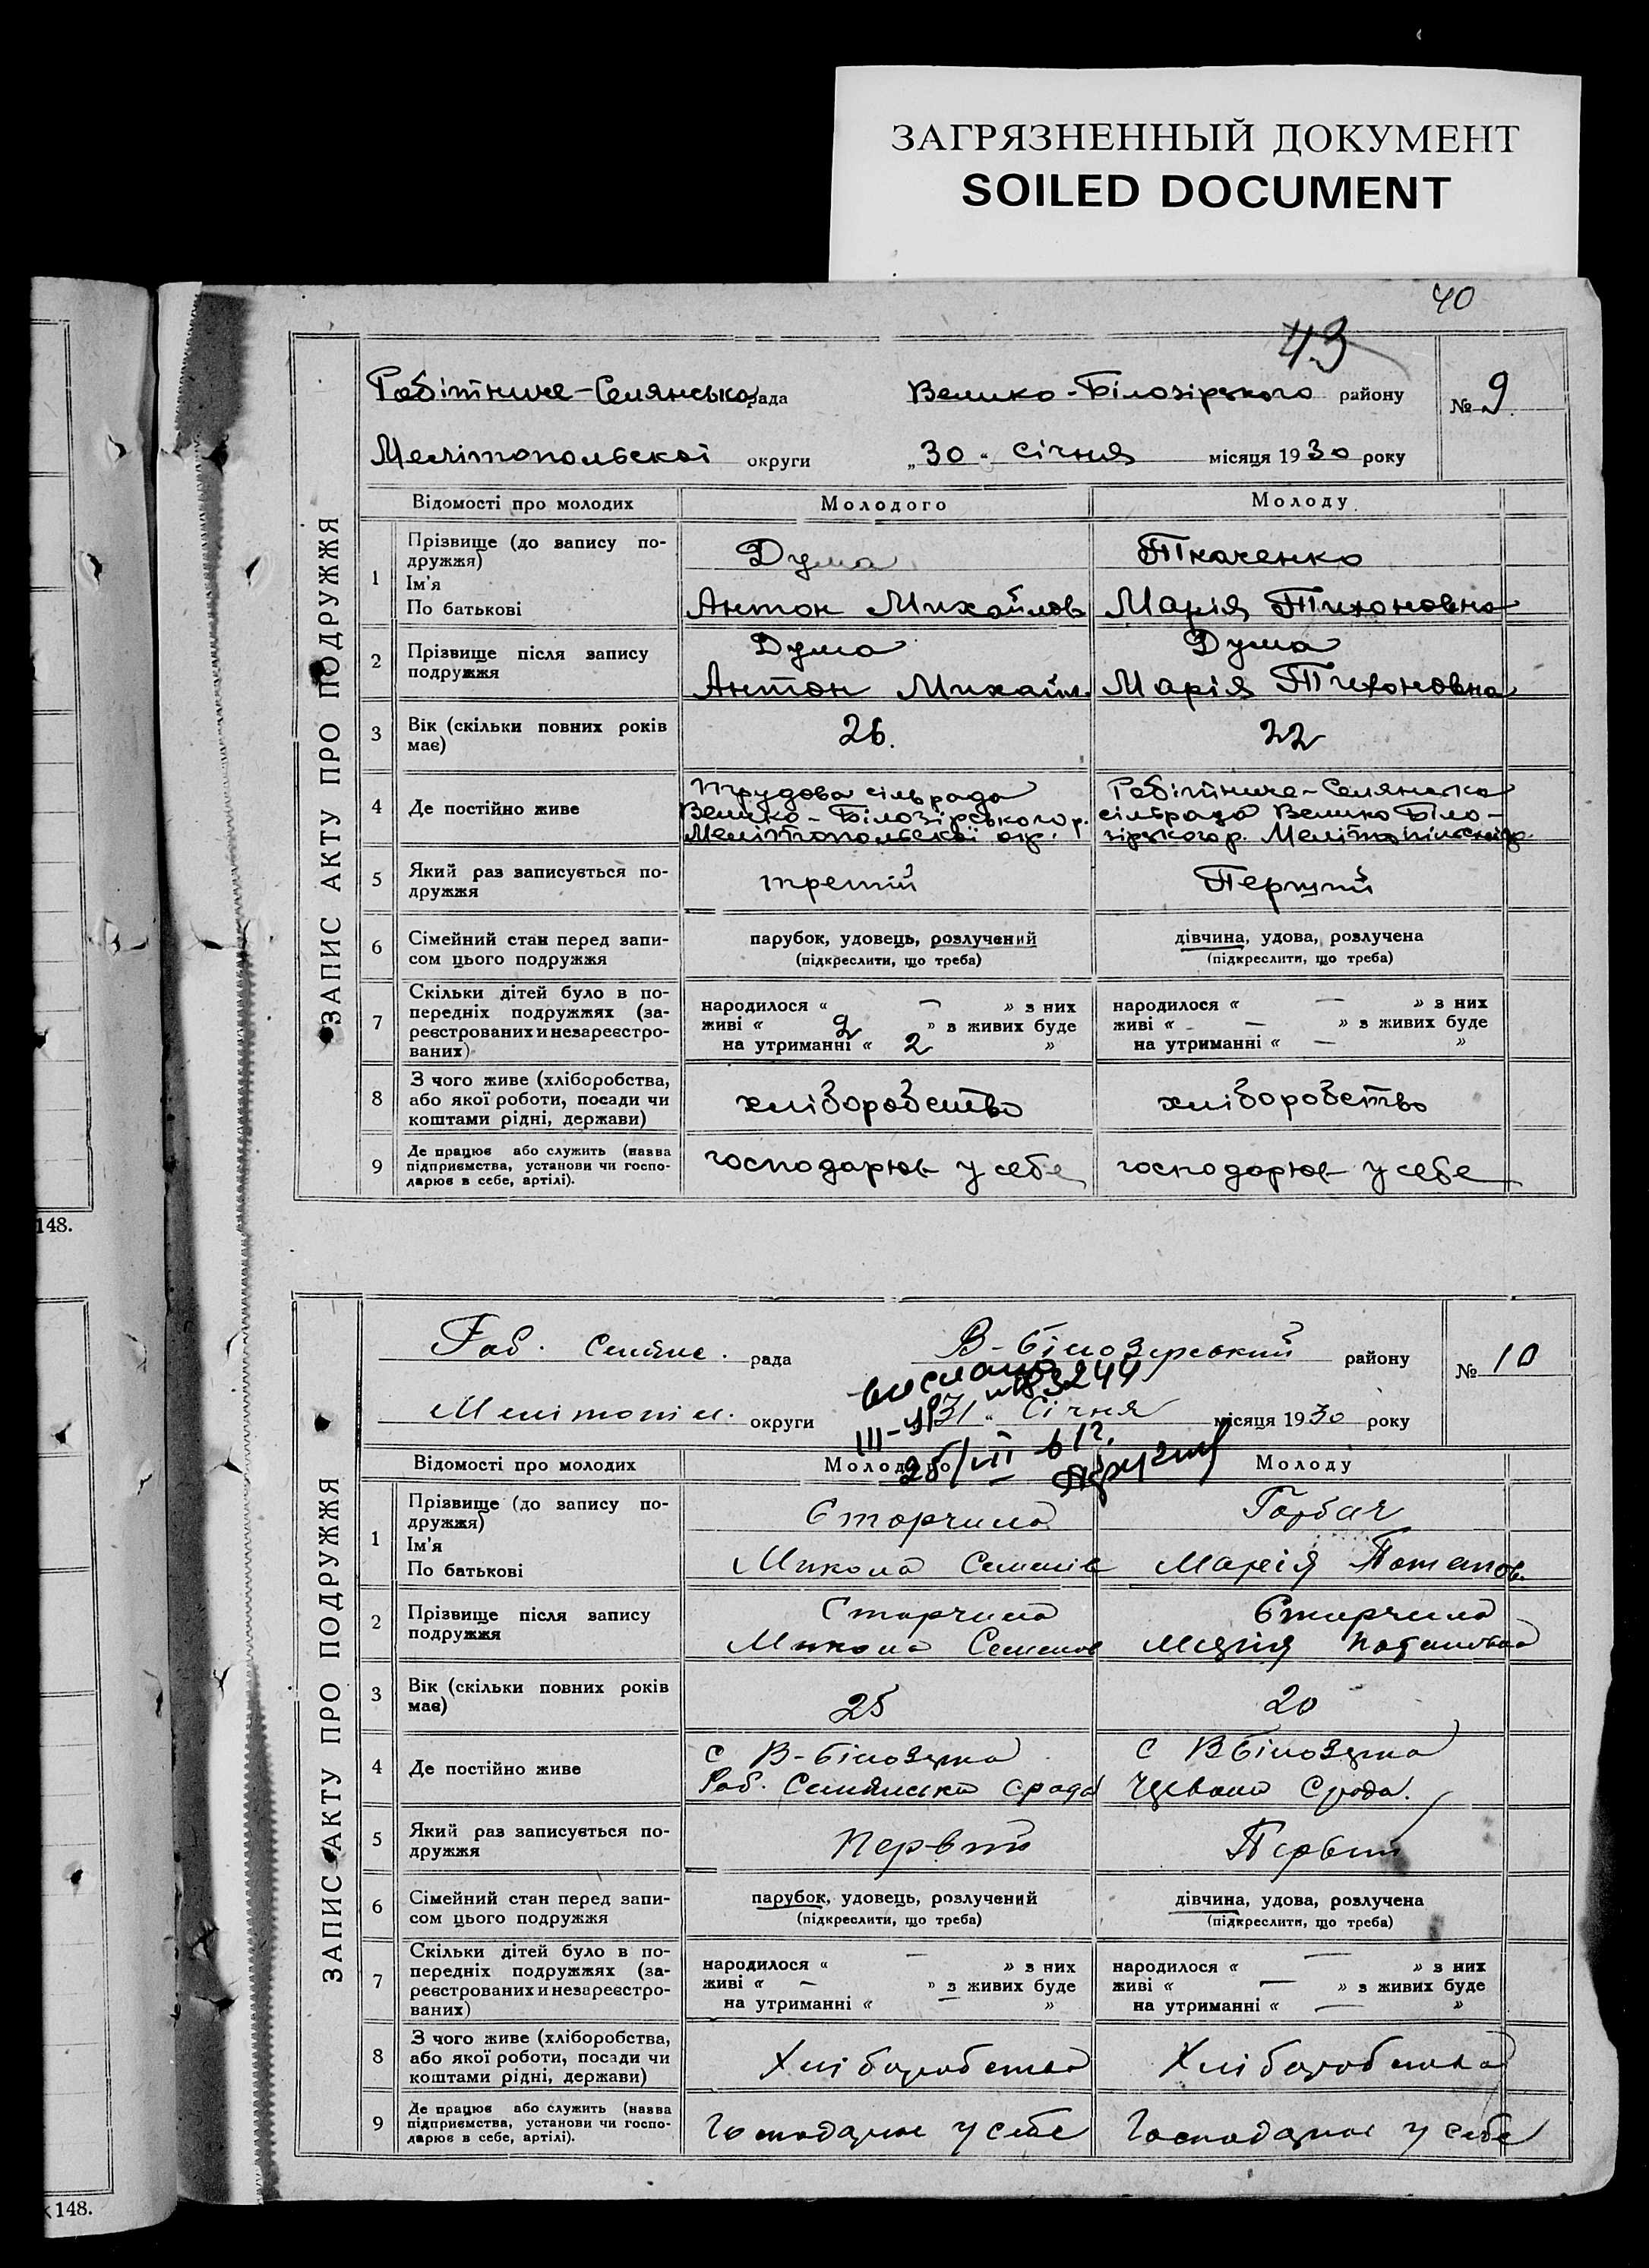 ЗАГРЯЗНЕННЫЙ ДОКУМЕНТ
SOILED DOCUMENT
40
43
ЗАПИС АКТУ ПРО ПОДРУЖЖЯ
Робітниче-Селянська рада Велико-Білозірського району № 9
Мелітопольскої округи „30“ січня місяця 1930 року
Відомості про молодих Молодого Молоду
1 Прізвище (до запису по-
дружжя) Дума Ткаченко
Ім'я
По батькові Антон Михайлов Марія Тихоновна
2 Прізвище після запису Дума Дума
подружжя Антон Михайл. Марія Тихоновна
3 Вік (скільки повних років
має) 26. 22
4 Де постійно живе Трудова сільрада Робітниче-Селянська
Велико-Білозірського р. сільрада Велико Біло-
Мелітопольскої окр. зірського р. Мелітопільскої
5 Який раз записується по-
дружжя третій Перший
6 Сімейний стан перед запи- парубок, удовець, розлучений дівчина, удова, розлучена
сом цього подружжя (підкреслити, що треба) (підкреслити, що треба)
7 Скільки дітей було в по-
передніх подружжях (за-
реєстрованих и незареєстро-
ваних)
народилося « — » з них народилося « — » з них
живі « 2 » з живих буде живі « — » з живих буде
на утриманні « 2 » на утриманні « — »
8 З чого живе (хліборобства,
або якої роботи, посади чи хліборобство хліборобство
коштами рідні, держави)
9 Де працює або служить (назва
підприємства, установи чи госпо- господарює у себе господарює у себе
дарює в себе, артілі).
148.
ЗАПИС АКТУ ПРО ПОДРУЖЖЯ
Раб. Селянс. рада В-Білозерський району № 10
выслано
III-УР №83244
25/VII 61г.
Мелітопіл. округи 31 „ Січня місяця 1930 року
Відомості про молодих Молодого Молоду
1 Прізвище (до запису по-
дружжя) Сторчила Горбач
Ім'я
По батькові Микола Семенів Марія Потапов.
2 Прізвище після запису Сторчила Сторчила
подружжя Микола Семенов Марія Потаповна
3 Вік (скільки повних років
має) 25 20
4 Де постійно живе с В-Білозірка с В Білозірка
Раб. Селянська срада Червона Срада.
5 Який раз записується по-
дружжя Первий Первий
6 Сімейний стан перед запи- парубок, удовець, розлучений дівчина, удова, розлучена
сом цього подружжя (підкреслити, що треба) (підкреслити, що треба)
7 Скільки дітей було в по-
передніх подружжях (за-
реєстрованих и незареєстро-
ваних)
народилося « — » з них народилося « — » з них
живі « — » з живих буде живі « — » з живих буде
на утриманні « — » на утриманні « — »
8 З чого живе (хліборобства,
або якої роботи, посади чи Хліборобства Хліборобства
коштами рідні, держави)
9 Де працює або служить (назва
підприємства, установи чи госпо- Господарює у себе Господарює у себе
дарює в себе, артілі).
148.